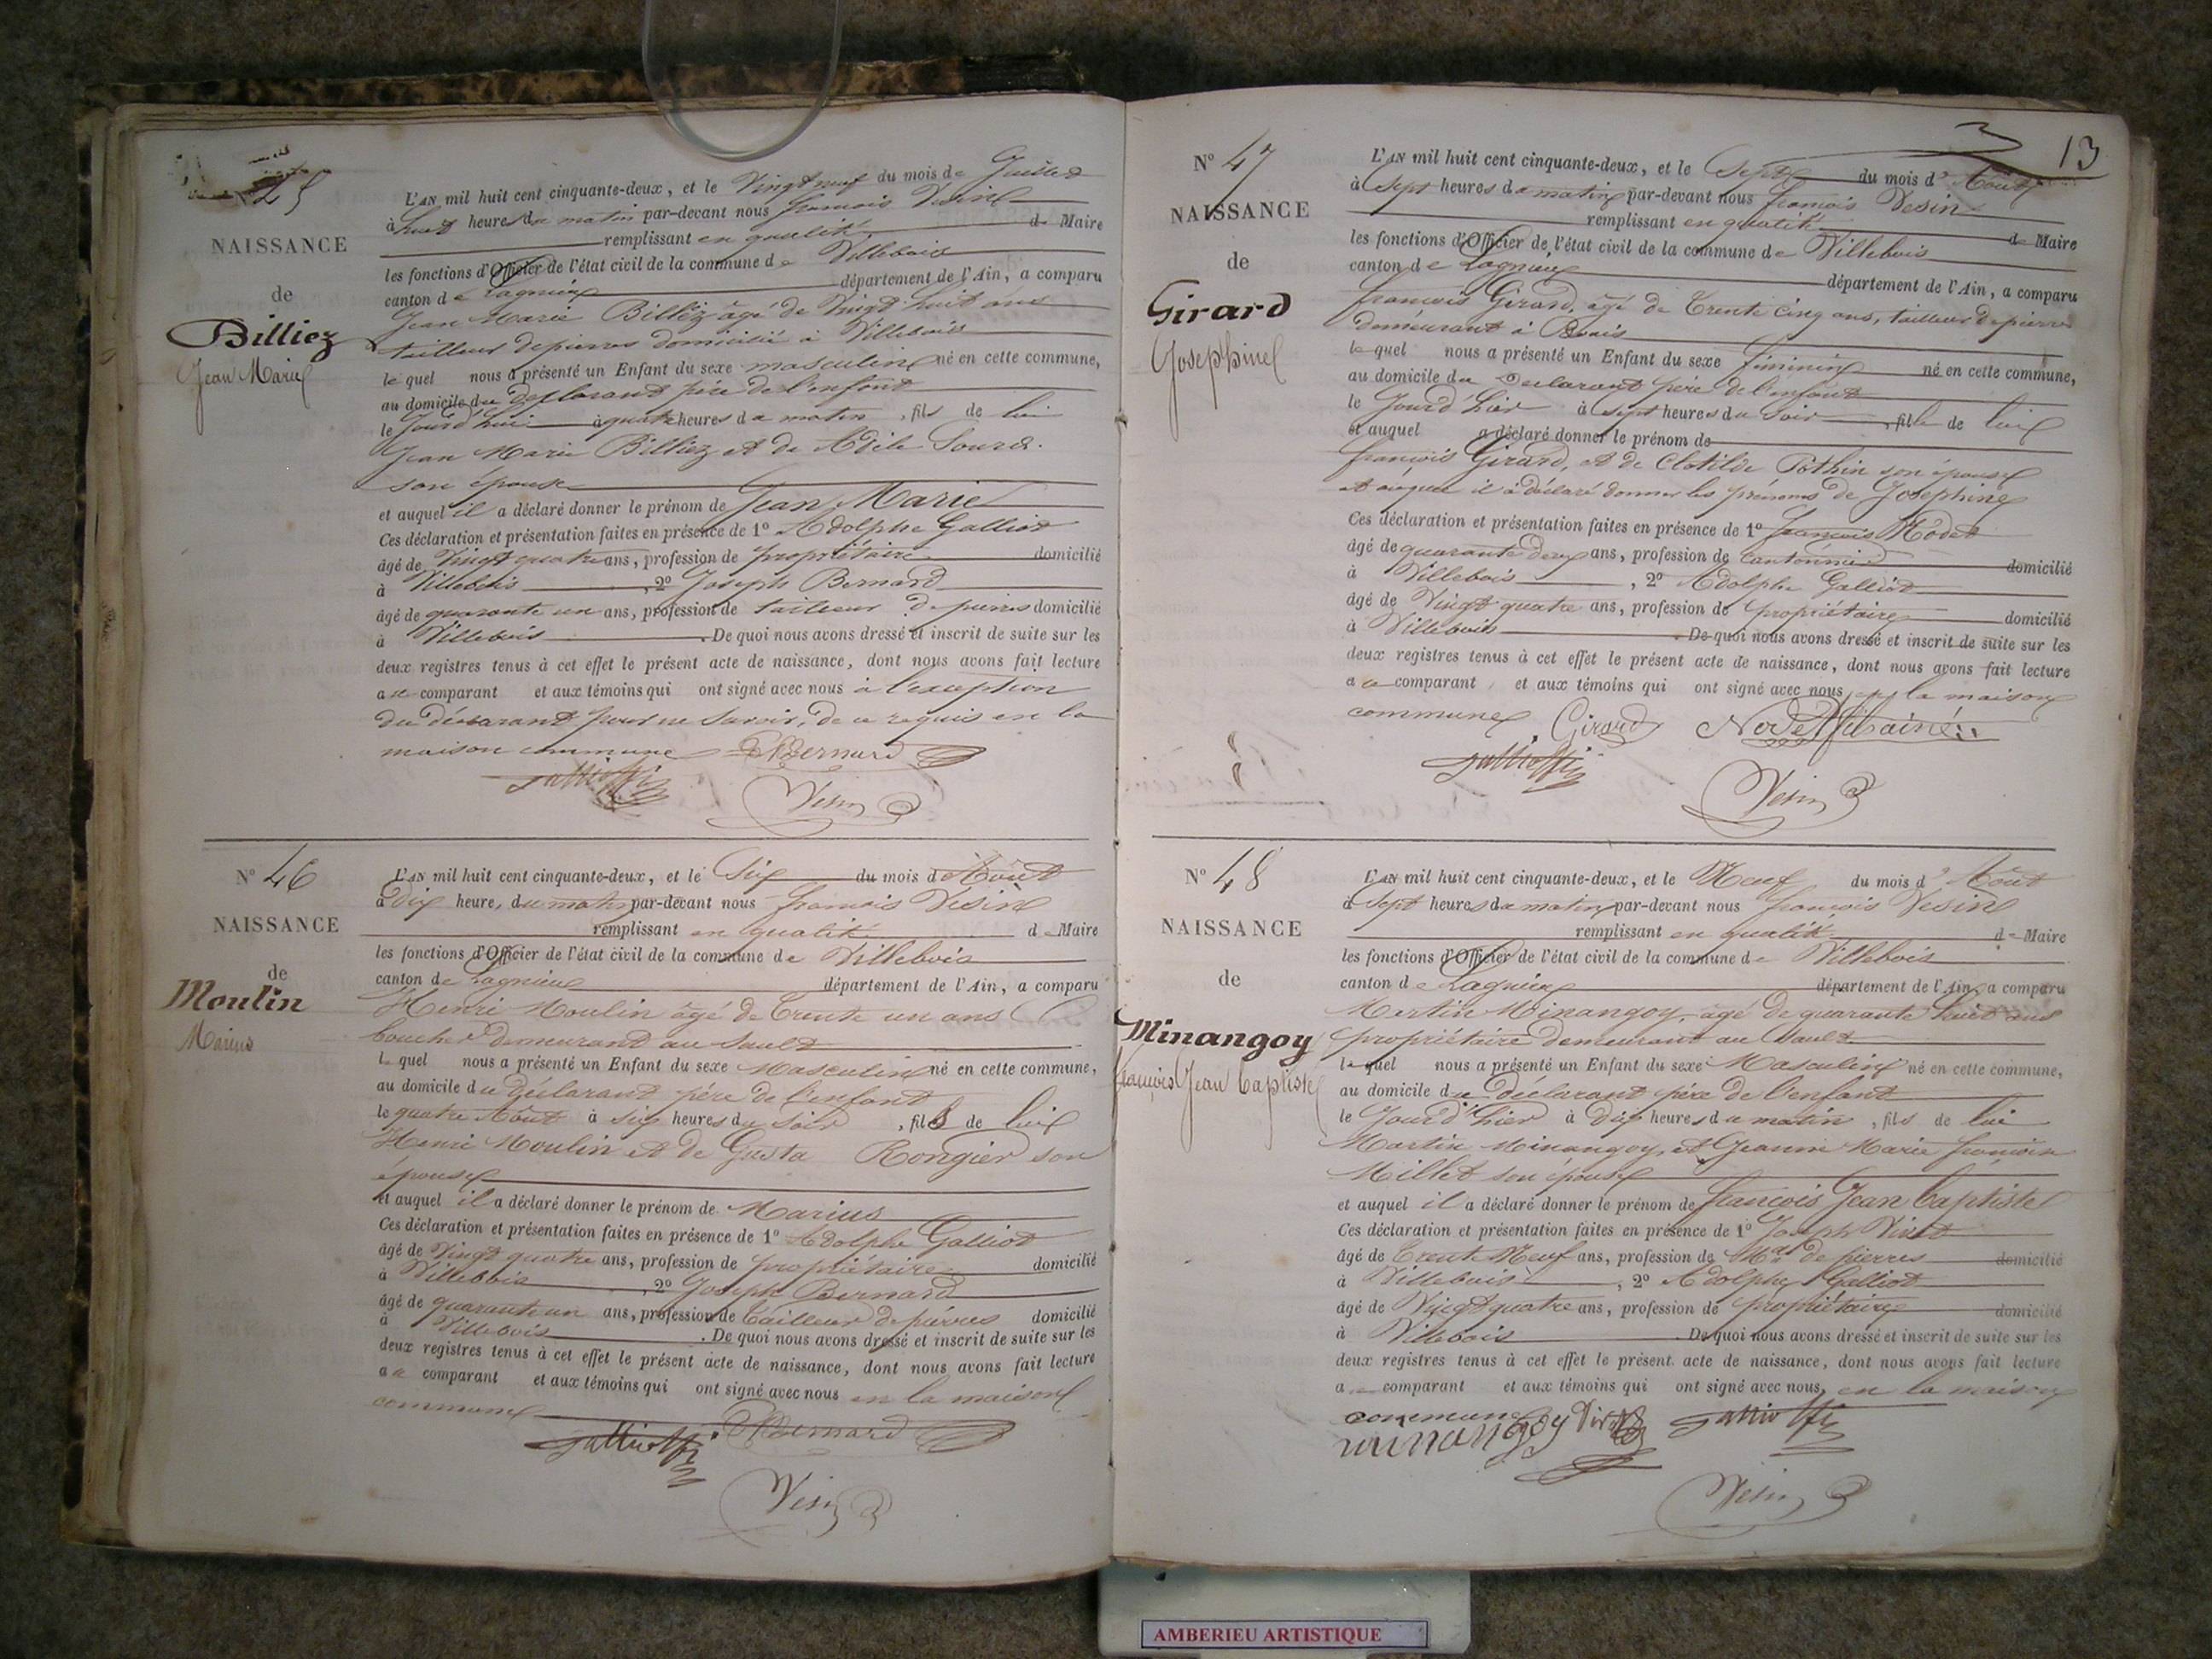 N° 45
NAISSANCE
de
Billiez
Jean Marie
L'AN mil huit cent cinquante-deux, et le Vingt neuf du mois de Juillet
à huit heures du matin par-devant nous françois Vesin
remplissant en qualité de Maire
les fonctions d'Officier de l'état civil de la commune de Villebois
canton de Lagnieu département de l'Ain, a comparu
Jean Marie Billiez âgé de Vingt huit ans
tailleur de pierres domicilié à Villebois
lequel nous a présenté un Enfant du sexe masculin né en cette commune,
au domicile du déclarant père de l'enfant
le Jourd'hui à quatre heures du matin, fils de lui
Jean Marie Billiez et de Adèle Sourd
son épouse
et auquel il a déclaré donner le prénom de Jean Marie
Ces déclaration et présentation faites en présence de 1° Adolphe Galliot
âgé de Vingt quatre ans, profession de propriétaire domicilié
à Villebois, 2° Joseph Bernard
âgé de quarante un ans, profession de tailleur de pierres domicilié
à Villebois. De quoi nous avons dressé et inscrit de suite sur les
deux registres tenus à cet effet le présent acte de naissance, dont nous avons fait lecture
au comparant et aux témoins qui ont signé avec nous à l'exception
du déclarant pour ne savoir, de ce requis en la
maison commune Bernard
Galliot
Vesin
N° 46
NAISSANCE
de
Moulin
Marius
L'AN mil huit cent cinquante-deux, et le Six du mois d'Août
à Dix heure, du matin par-devant nous françois Vesin
remplissant en qualité de Maire
les fonctions d'Officier de l'état civil de la commune de Villebois
canton de Lagnieu département de l'Ain, a comparu
Henri Moulin âgé de Trente un ans
boucher demeurant au Sault
lequel nous a présenté un Enfant du sexe Masculin né en cette commune,
au domicile du déclarant père de l'enfant
le quatre Août à six heures du soir, fils de lui
Henri Moulin et de Gusta Rongier son
épouse
et auquel il a déclaré donner le prénom de Marius
Ces déclaration et présentation faites en présence de 1° Adolphe Galliot
âgé de Vingt quatre ans, profession de propriétaire domicilié
à Villebois, 2° Joseph Bernard
âgé de quarante un ans, profession de tailleur de pierres domicilié
à Villebois. De quoi nous avons dressé et inscrit de suite sur les
deux registres tenus à cet effet le présent acte de naissance, dont nous avons fait lecture
au comparant et aux témoins qui ont signé avec nous en la maison
commune
Galliot Bernard
Vesin
13
N° 47
NAISSANCE
de
Girard
Josephine
L'AN mil huit cent cinquante-deux, et le Sept du mois d'Août
à Sept heures du matin par-devant nous françois Vesin
remplissant en qualité de Maire
les fonctions d'Officier de l'état civil de la commune de Villebois
canton de Lagnieu département de l'Ain, a comparu
françois Girard, âgé de Trente cinq ans, tailleur de pierres
demeurant à Bouis
lequel nous a présenté un Enfant du sexe féminin né en cette commune,
au domicile du Déclarant père de l'enfant
le Jourd'hier à sept heures du Soir, fille de lui
et auquel a déclaré donner le prénom de
françois Girard, et de Clotilde Pothin son épouse
et auquel il a déclaré donner les prénoms de Josephine
Ces déclaration et présentation faites en présence de 1° françois Nodet
âgé de quarante deux ans, profession de cantonnier domicilié
à Villebois, 2° Adolphe Galliot
âgé de Vingt quatre ans, profession de propriétaire domicilié
à Villebois. De quoi nous avons dressé et inscrit de suite sur les
deux registres tenus à cet effet le présent acte de naissance, dont nous avons fait lecture
au comparant, et aux témoins qui ont signé avec nous en la maison
commune Girard Nodet
Galliot
Vesin
N° 48
NAISSANCE
de
Minangoy
françois Jean Baptiste
L'AN mil huit cent cinquante-deux, et le Neuf du mois d'Août
à Sept heures du matin par-devant nous françois Vesin
remplissant en qualité de Maire
les fonctions d'Officier de l'état civil de la commune de Villebois
canton de Lagnieu département de l'Ain, a comparu
Martin Minangoy, âgé de quarante huit ans
propriétaire demeurant au Sault
lequel nous a présenté un Enfant du sexe Masculin né en cette commune,
au domicile du déclarant père de l'enfant
le Jourd'hier à Dix heures du matin, fils de lui
Martin Minangoy, et Jeanne Marie françoise
Millet son épouse
et auquel il a déclaré donner le prénom de françois Jean Baptiste
Ces déclaration et présentation faites en présence de 1° Joseph Viret
âgé de Trente Neuf ans, profession de Md de pierres domicilié
à Villebois, 2° Adolphe Galliot
âgé de Vingt quatre ans, profession de propriétaire domicilié
à Villebois. De quoi nous avons dressé et inscrit de suite sur les
deux registres tenus à cet effet le présent acte de naissance, dont nous avons fait lecture
au comparant et aux témoins qui ont signé avec nous, en la maison
commune
minangoy Viret Galliot
Vesin
AMBERIEU ARTISTIQUE